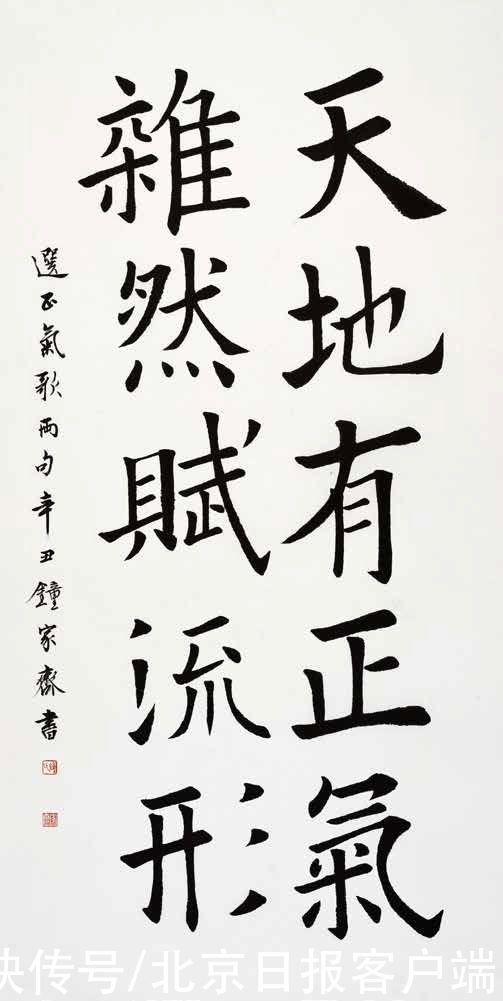 天地有正氣
雜然賦流形
選正氣歌兩句辛丑鐘家齋書
快传号/北京日报客户端